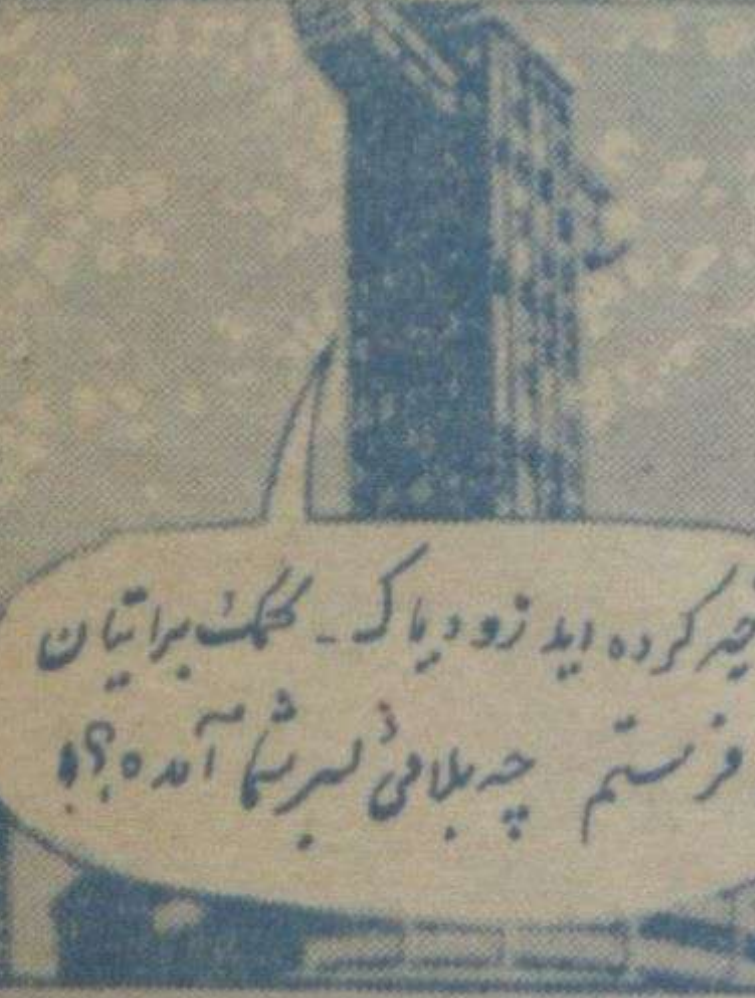 چه کرده اید زودیاک - کمک برایتان
فرستم چه بلائی بسر شما آمده؟!